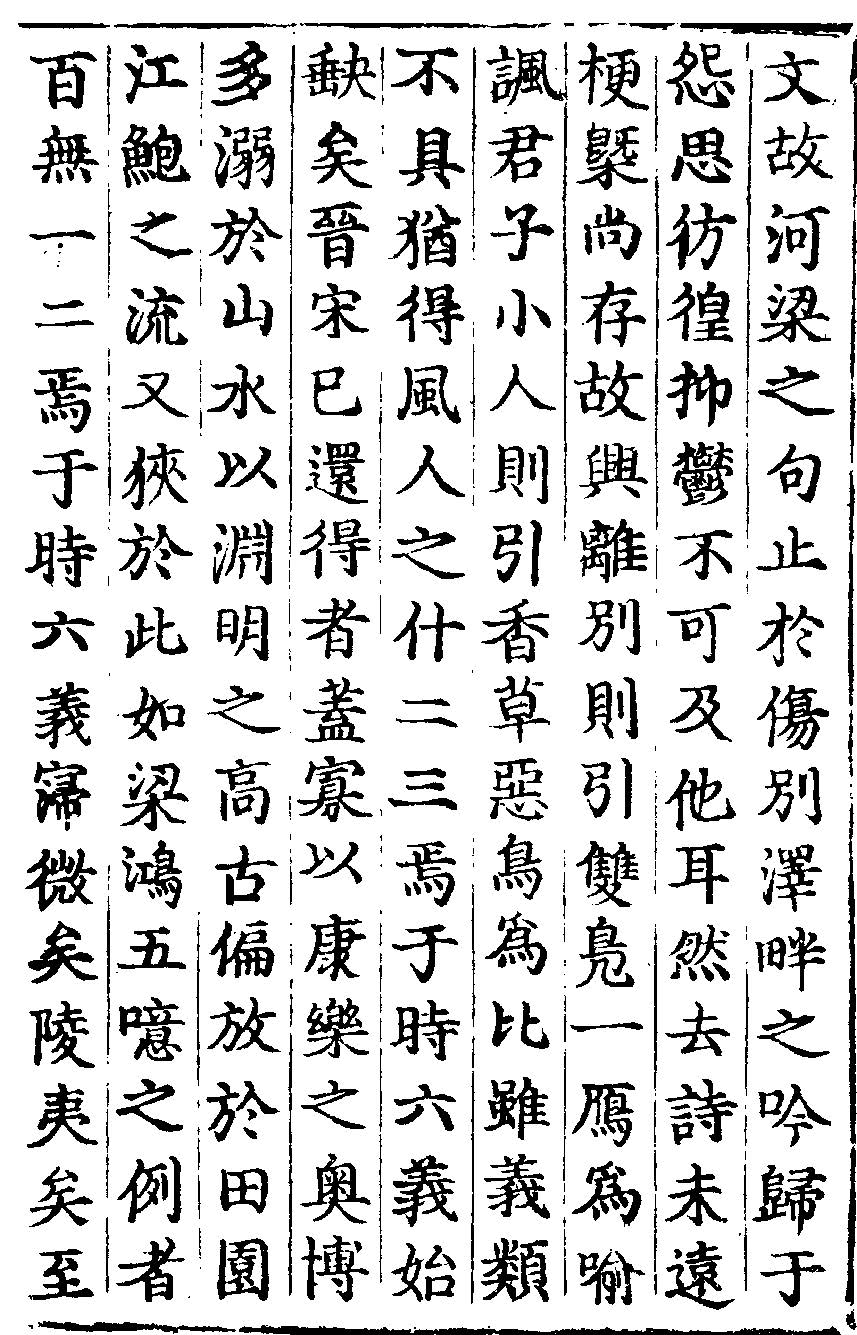 文故河梁之句止於傷別澤畔之吟歸于
怨思彷徨抑鬱不可及他耳然去詩未遠
梗槩尚存故興離別則引雙鳬一鴈爲喻
諷君子小人則引香草惡鳥爲比雖義類
不具猶得風人之什二三焉于時六義始
缺矣晉宋已還得者蓋寡以康樂之奥博
多溺於山水以淵明之高古偏放於田園
江鮑之流又狹於此如梁鴻五噫之例者
百無一二焉于時六義寖微矣陵夷矣至